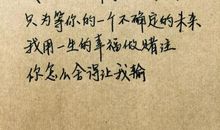 只为等你的一个不确定的未来
我用一生的幸福做赌注
你怎么舍得让我输